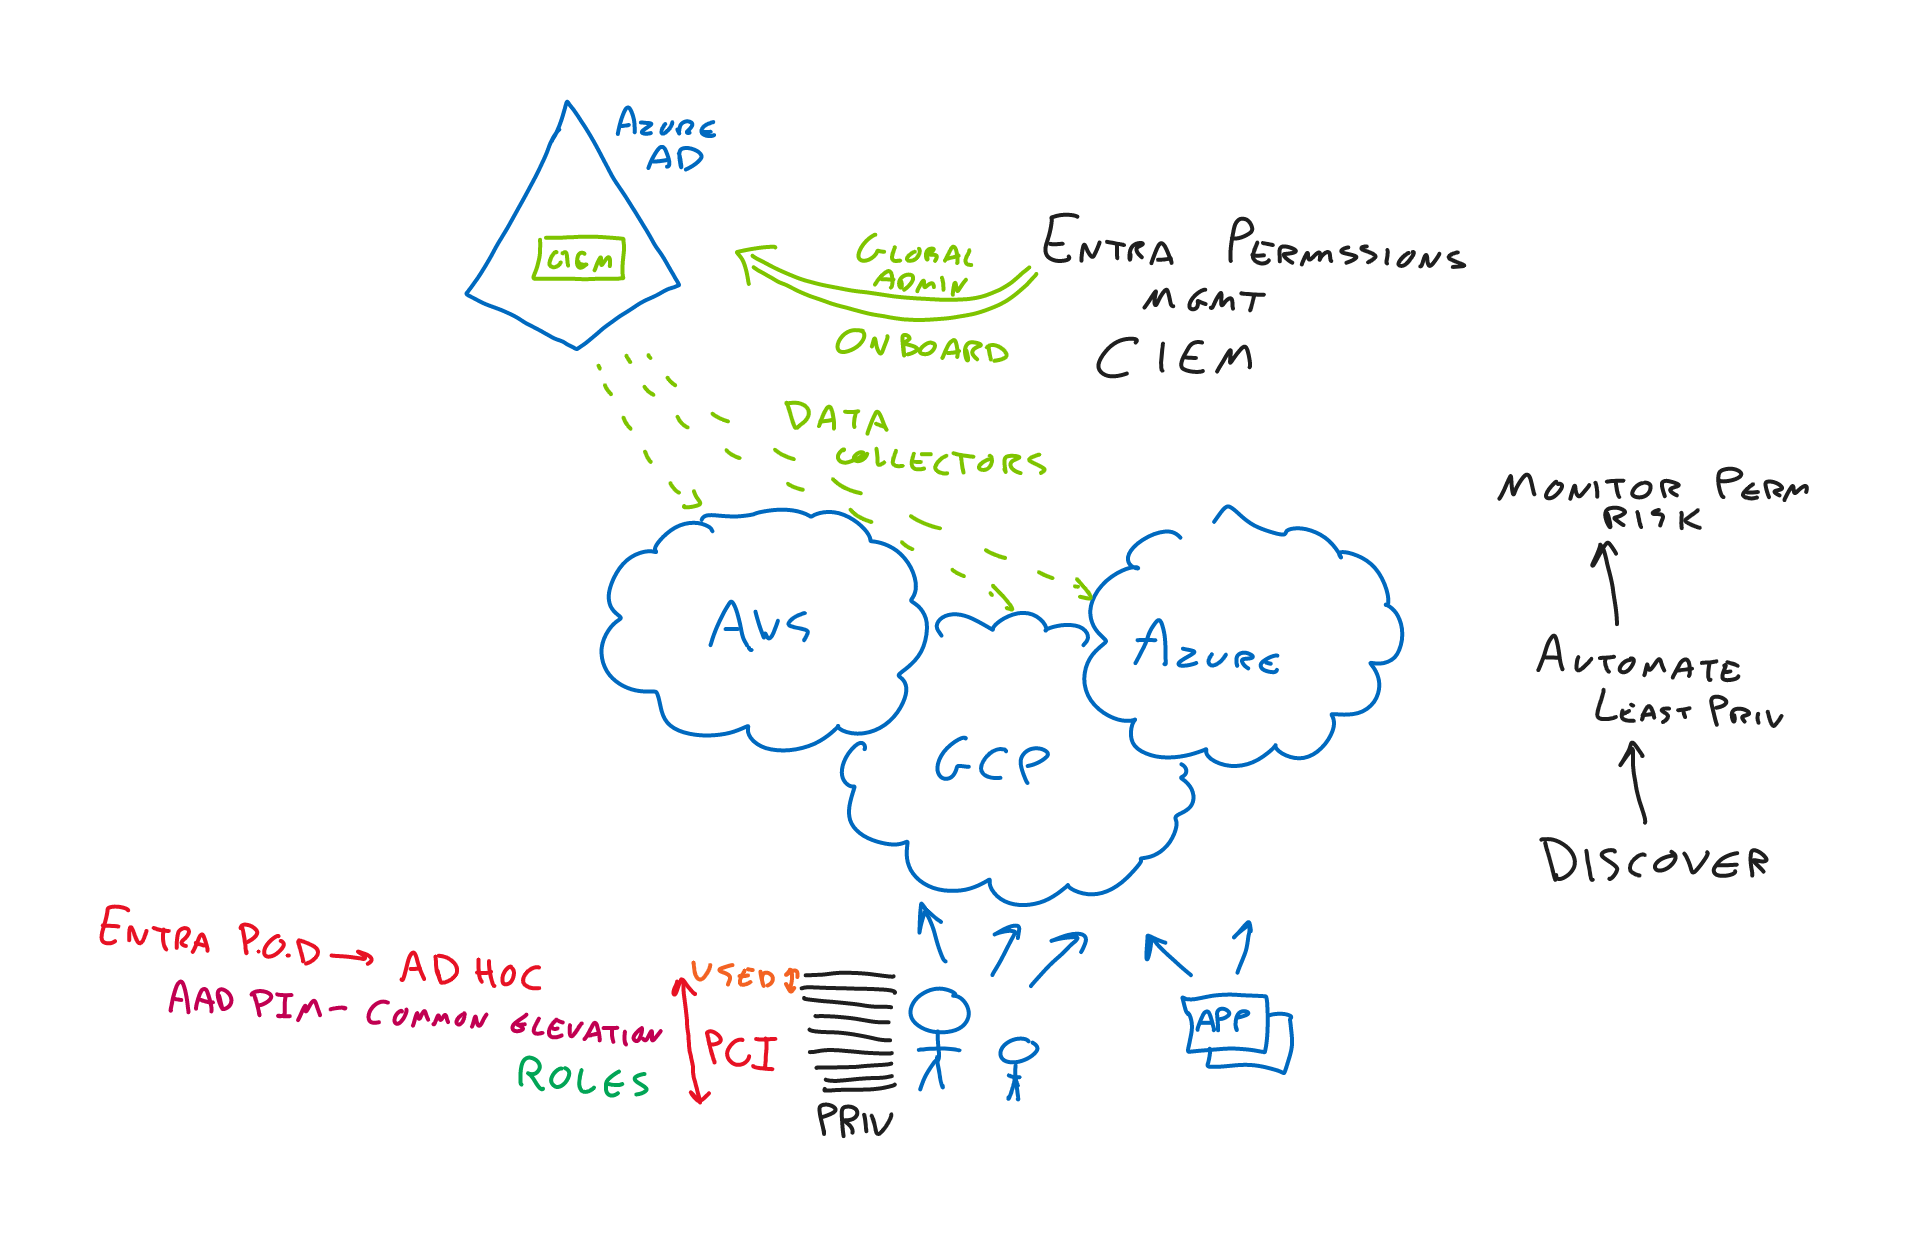 AZURE
AD
CIEM
GLOBAL
ADMIN
ONBOARD
ENTRA PERMSSIONS
MGMT
CIEM
DATA
COLLECTORS
AWS
GCP
AZURE
MONITOR PERM
RISK
AUTOMATE
LEAST PRIV
DISCOVER
ENTRA P.O.D → AD HOC
AAD PIM - COMMON ELEVATION
ROLES
USED
PCI
PRIV
APP